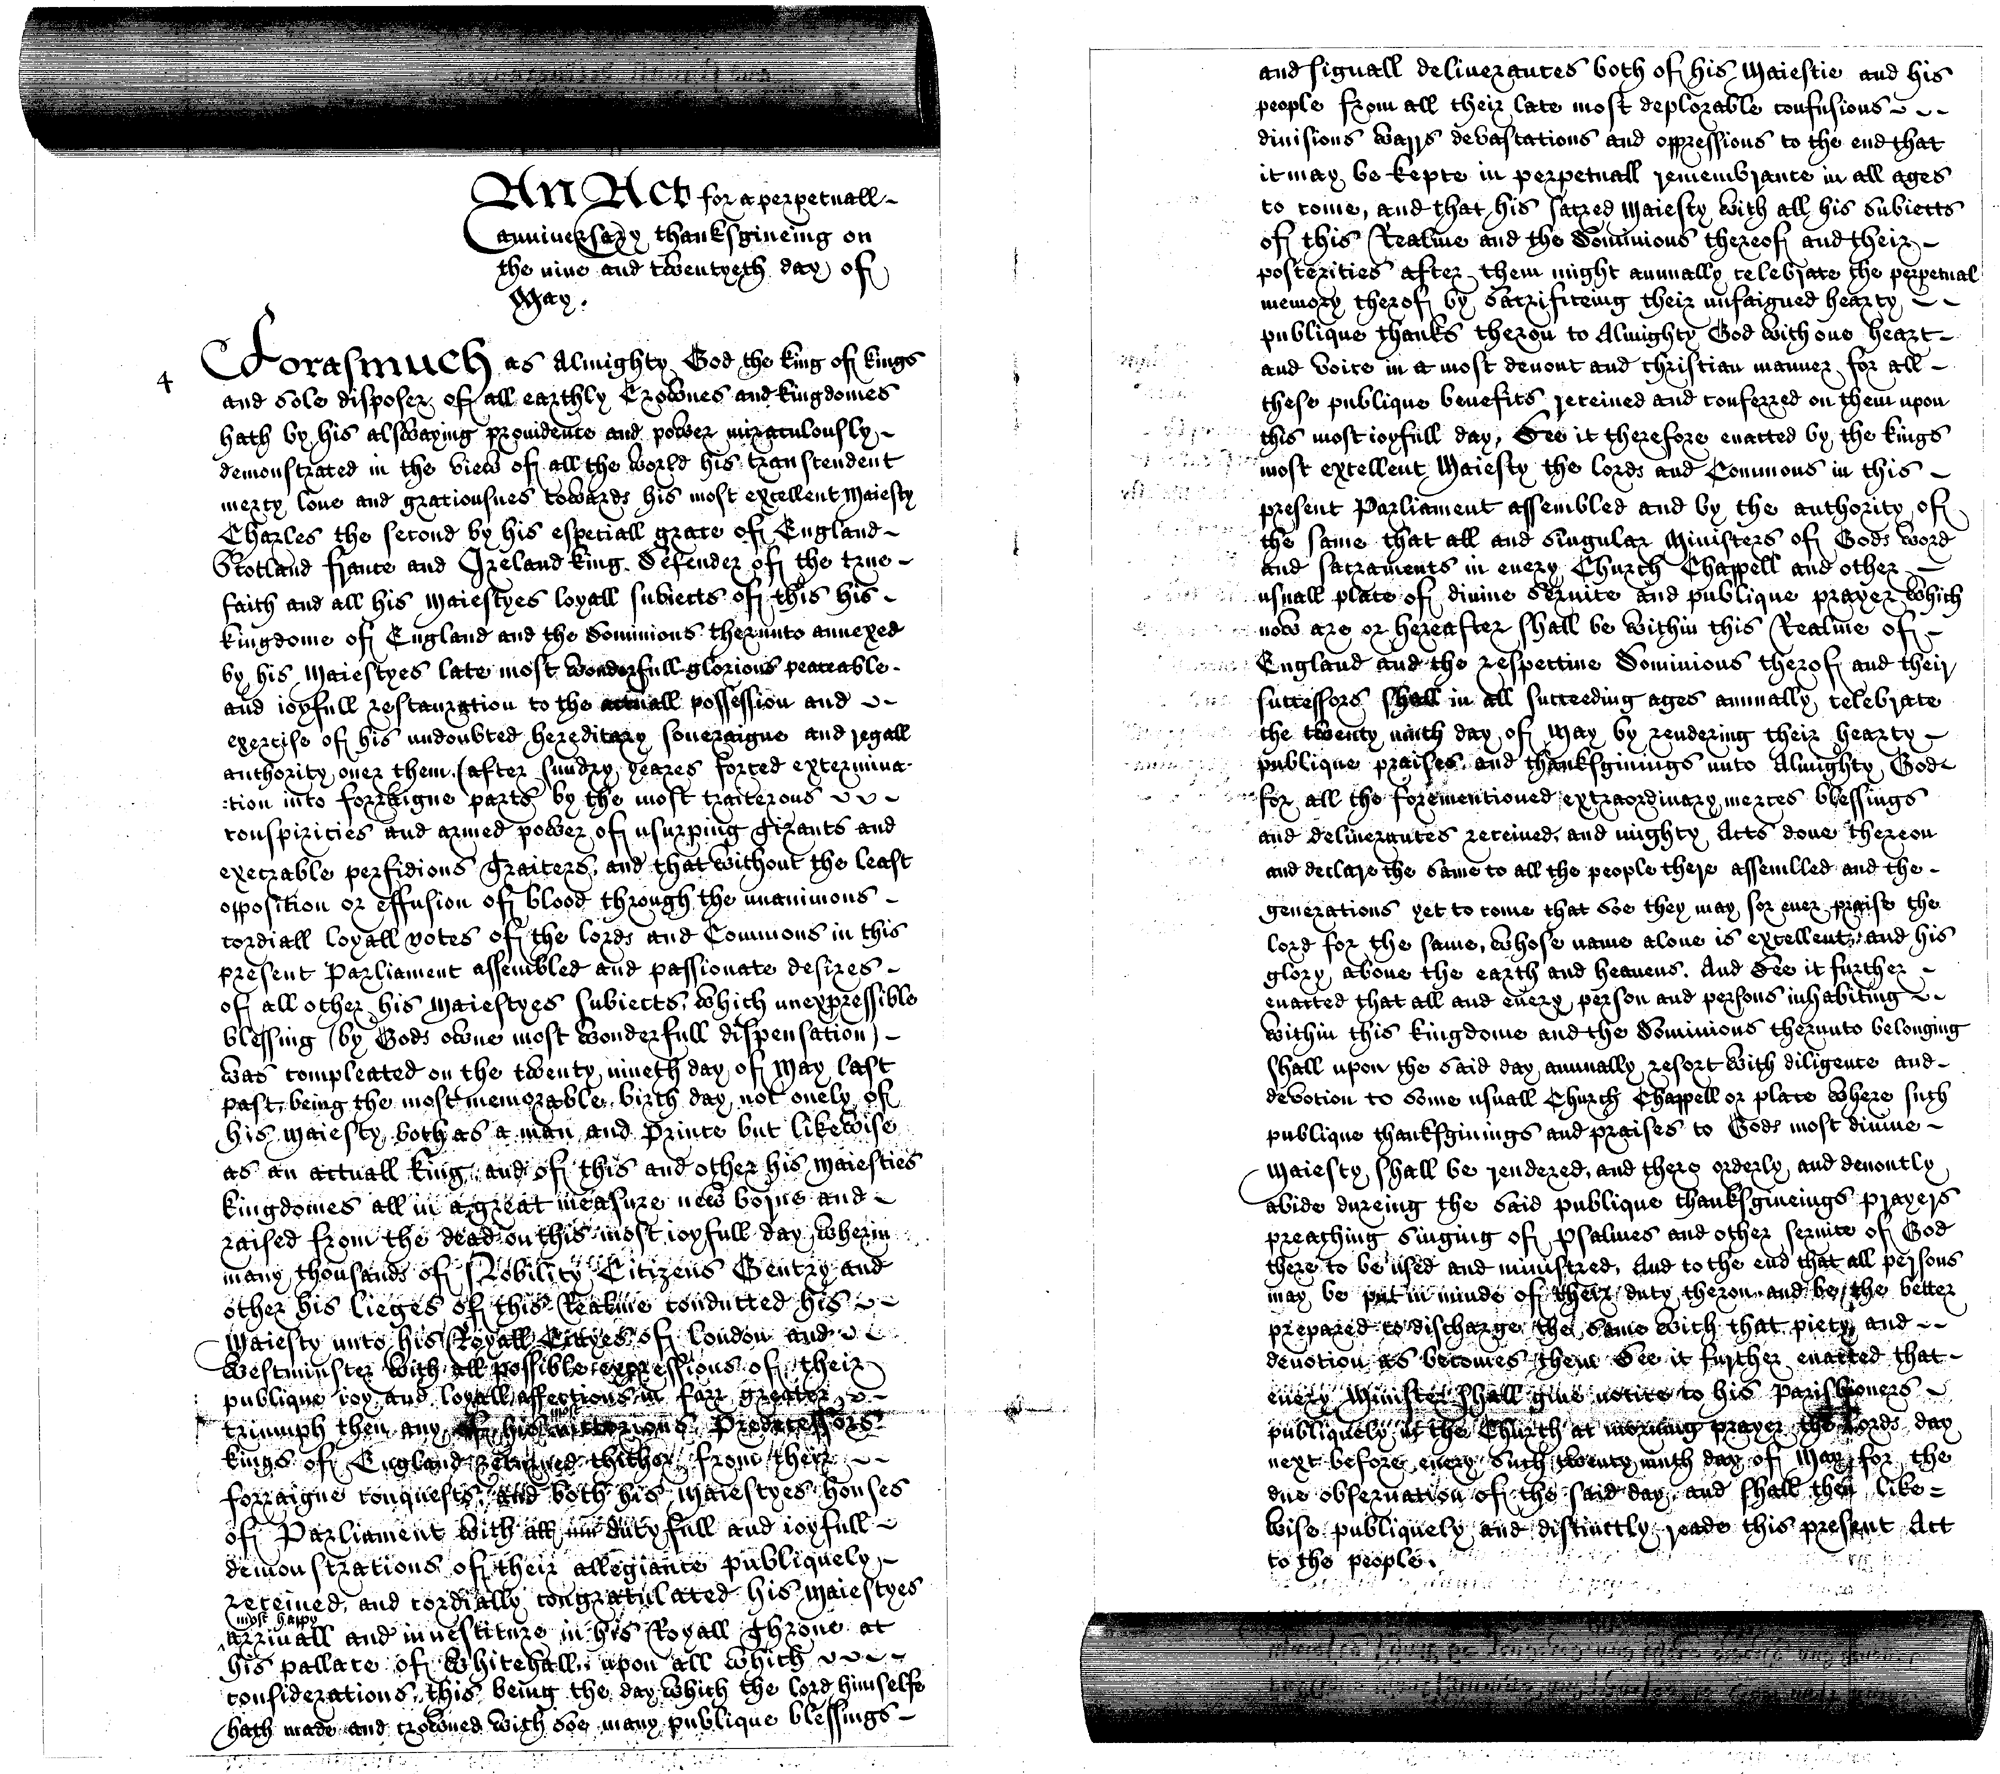 An Act for a perpetuall
anniversary thanksgiueing on
the nine and twentyeth day of
May.
4
Forasmuch as Almighty God the king of kings
and sole disposer of all earthly Crownes and kingdomes
hath by his alswaying prouidence and power miraculously
demonstrated in the view of all the world his transcendent
mercy loue and graciousnes towards his most excellent Maiesty
Charles the second by his especiall grace of England
Scotland france and Ireland king. Defender of the true
faith and all his Maiestyes loyall subiects of this his
kingdome of England and the Dominions therunto annexed
by his Maiestyes late most wonderfull glorious peaceable
and ioyfull restauration to the actuall possession and
exercise of his undoubted hereditary soueraigne and regall
authority ouer them (after sundry yeares forced extermina
:tion into forraigne parts by the most traiterous
conspiricies and armed power of usurping tirants and
execrable perfidious traiters, and that without the least
opposition or effusion of blood through the unanimous
cordiall loyall votes of the lords and Commons in this
present Parliament assembled and passionate desires
of all other his Maiestyes subiects, which unexpressible
blessing (by Gods owne most wonderfull dispensation)
was compleated on the twenty nineth day of May last
past, being the most memorable birth day not onely of
his Maiesty both as a man and Prince but likewise
as an actuall king, and of this and other his Maiesties
kingdomes all in a great measure new borne and
raised from the dead on this most ioyfull day wherin
many thousands of Nobility Citizens Gentry and
other his lieges of this Realme conducted his
Maiesty unto his Royall Cityes of London and
Westminster with all possible expressions of their
publique ioy and loyall affections in farr greater
triumph then any of his victorious Predecessors
kings of England returned thither from their
forraigne conquests, and both his Maiestyes houses
of Parliament with all dutyfull and ioyfull
demonstrations of their allegiance publiquely
receiued, and cordially congratulated his Maiestyes
most happy
arriuall and inuestiture in his Royall Throne at
his pallace of Whitehall, upon all which
considerations this being the day which the lord himselfe
hath made and crowned with soe many publique blessings
and signall deliuerances both of his Maiestie and his
people from all their late most deplorable confusions
diuisions warrs devastations and oppressions to the end that
it may be kepte in perpetuall remembrance in all ages
to come, and that his sacred Maiesty with all his subiects
of this Realme and the Dominions thereof and their
posterities after them might annually celebrate the perpetual
memory therof by sacrificeing their unfaigned hearty
publique thanks theron to Almighty God with one heart
and voice in a most deuout and christian manner for all
these publique benefits receiued and conferred on them upon
this most ioyfull day, Bee it therefore enacted by the kings
most excellent Maiesty the lords and Commons in this
present Parliament assembled and by the authority of
the same that all and singular Ministers of Gods word
and sacraments in euery Church Chappell and other
usuall place of diuine seruice and publique prayer which
now are or hereafter shall be within this Realme of
England and the respectiue Dominions therof and their
successors shall in all succeeding ages annually celebrate
the twenty ninth day of May by rendering their hearty
publique praises and thanksgiuings unto Almighty God
for all the forementioned extraordinary merces blessings
and deliuerances receiued, and mighty Acts done thereon
and declare the same to all the people there assemlled and the
generations yet to come that soe they may for euer praise the
lord for the same, whose name alone is excellent, and his
glory aboue the earth and heauens. And Bee it further
enacted that all and euery person and persons inhabiting
within this kingdome and the Dominions therunto belonging
shall upon the said day annually resort with diligence and
devotion to some usuall Church Chappell or place where such
publique thanksgiuings and praises to Gods most diuine
Maiesty shall be rendered, and there orderly and deuoutly
abide dureing the said publique thanksgiueings prayers
preaching singing of Psalmes and other seruice of God
there to be used and ministred, And to the end that all persons
may be put in minde of their duty theron and be the better
prepared to discharge the same with that piety and
deuotion as becomes them Bee it further enacted that
euery Minister shall giue notice to his Parishioners
publiquely in the Church at morning prayer the Lords day
next before euery such twenty ninth day of May for the
due obseruation of the said day, and shall then like=
wise publiquely and distinctly reade this present Act
to the people.